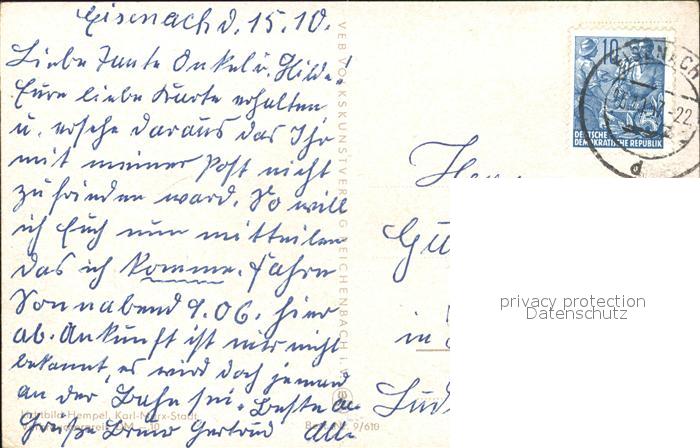 Eisenach d. 15.10.
Liebe Tante Onkel u. Hilde!
Eure liebe Karte erhalten
u. ersehe daraus das Ihr
mit meiner Post nicht
zufrieden ward. So will
ich Euch nun mitteilen
das ich komme. Fahre
Sonnabend 9.06. hier
ab. Ankunft ist mir nicht
bekannt, es wird doch jemand
an der Bahn sei. Beste
Grüße Gertrud
VEB VOLKSKUNSTVERLAG REICHENBACH i. V.
Lichtbild: Hempel, Karl-Marx-Stadt
9/610
10
DEUTSCHE
DEMOKRATISCHE REPUBLIK
EISENACH
d
in
privacy protection
Datenschutz